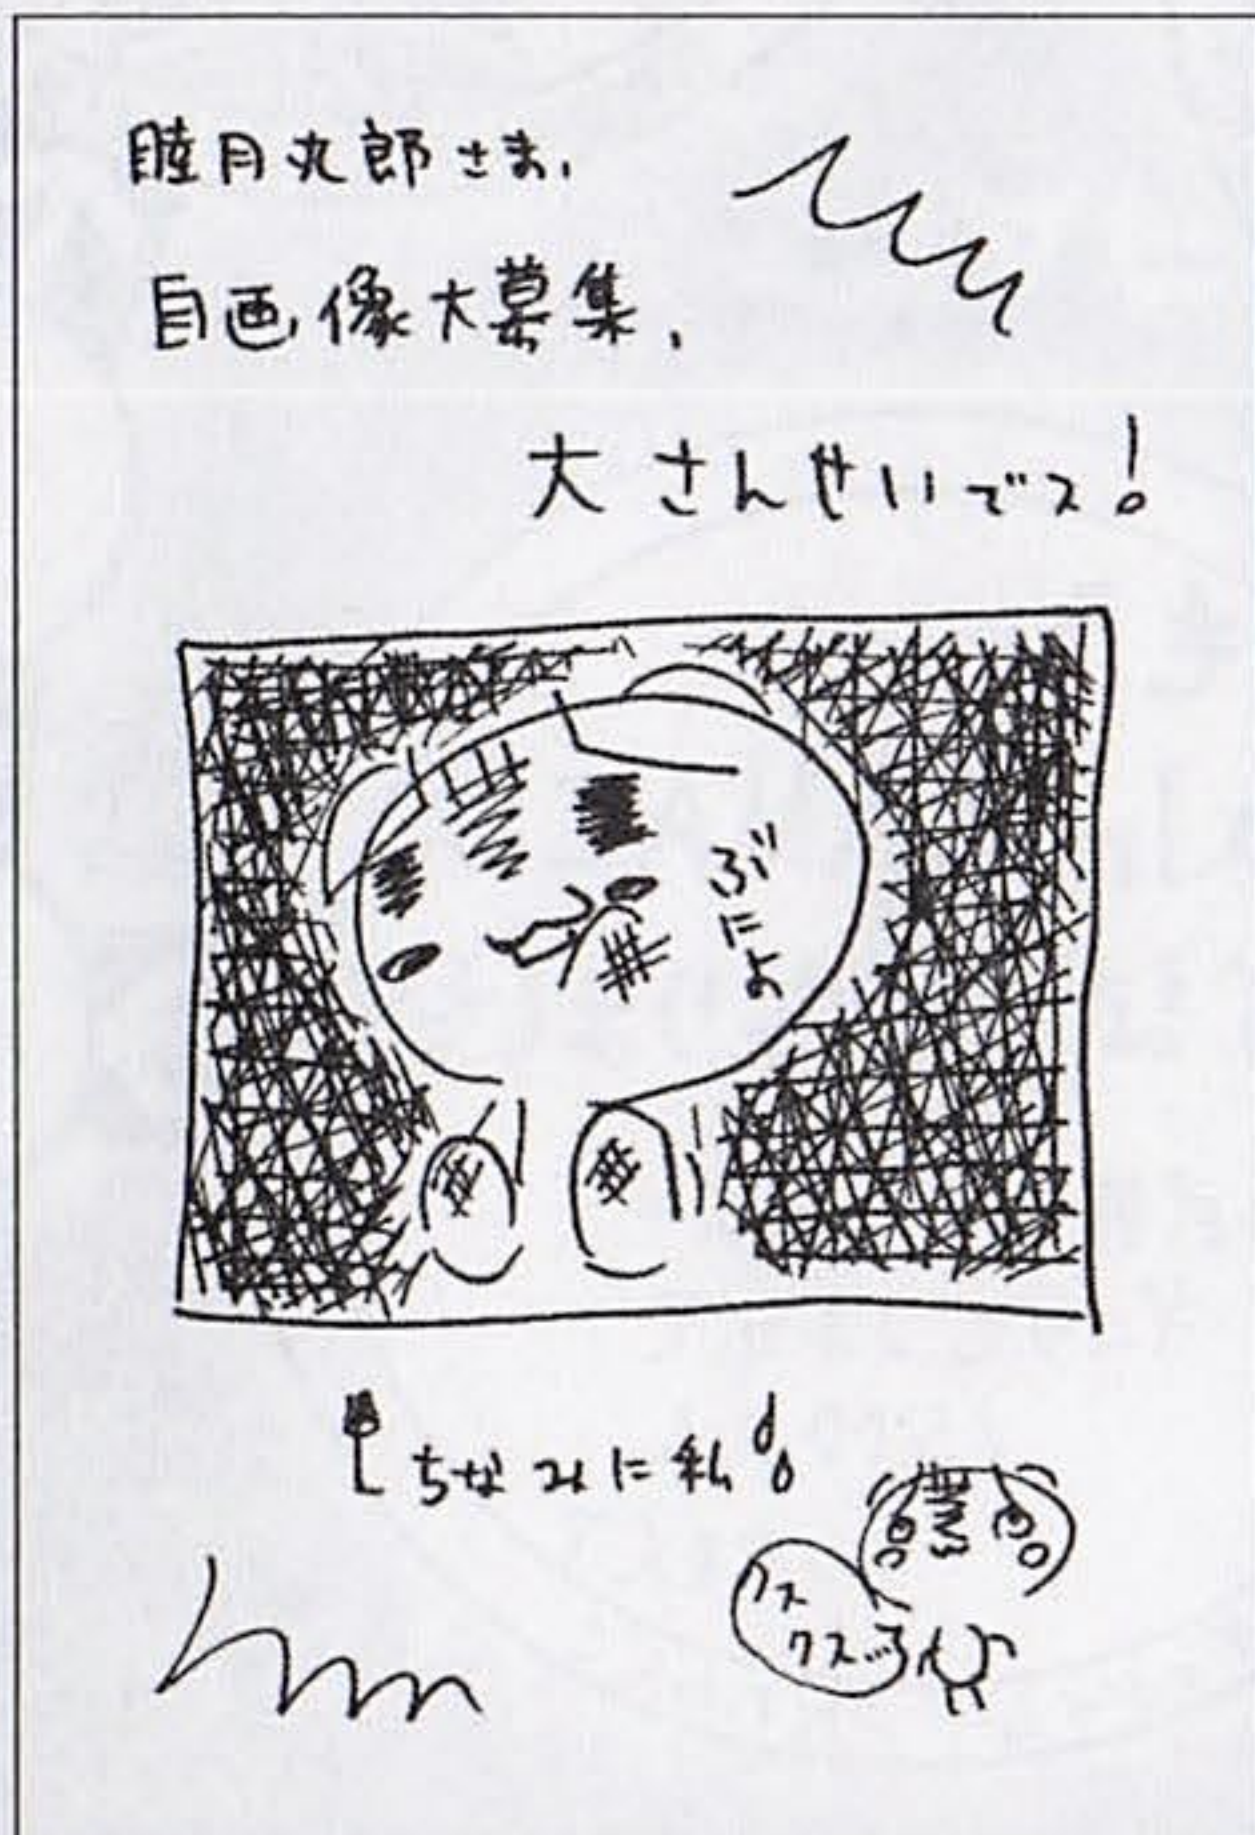 睦月丸郎さま、
自画像大募集、
大さんせいでス!
ぶによ
ちなみに私
クス
クス…